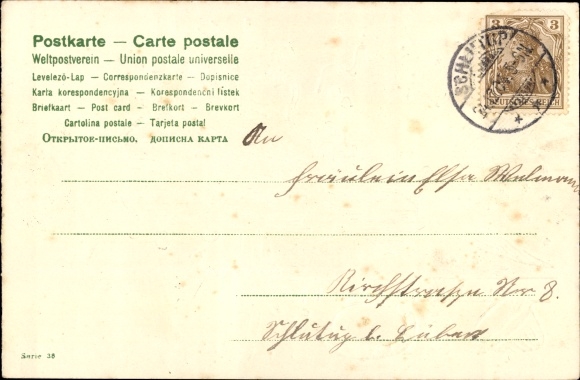 Postkarte — Carte postale
Weltpostverein — Union postale universelle
Levelező-Lap — Correspondenzkarte — Dopisnice
Karta korespondencyjna — Korespondenční lístek
Briefkaart — Post card — Brefkort — Brevkort
Cartolina postale — Tarjeta postal
Открытое-письмо. дописна карта
3 3
DEUTSCHES REICH
SCHLUTUP
An
Fräulein Elsa
Kirchstrasse Nr 8.
Schlutup b. Lübeck
Serie 36